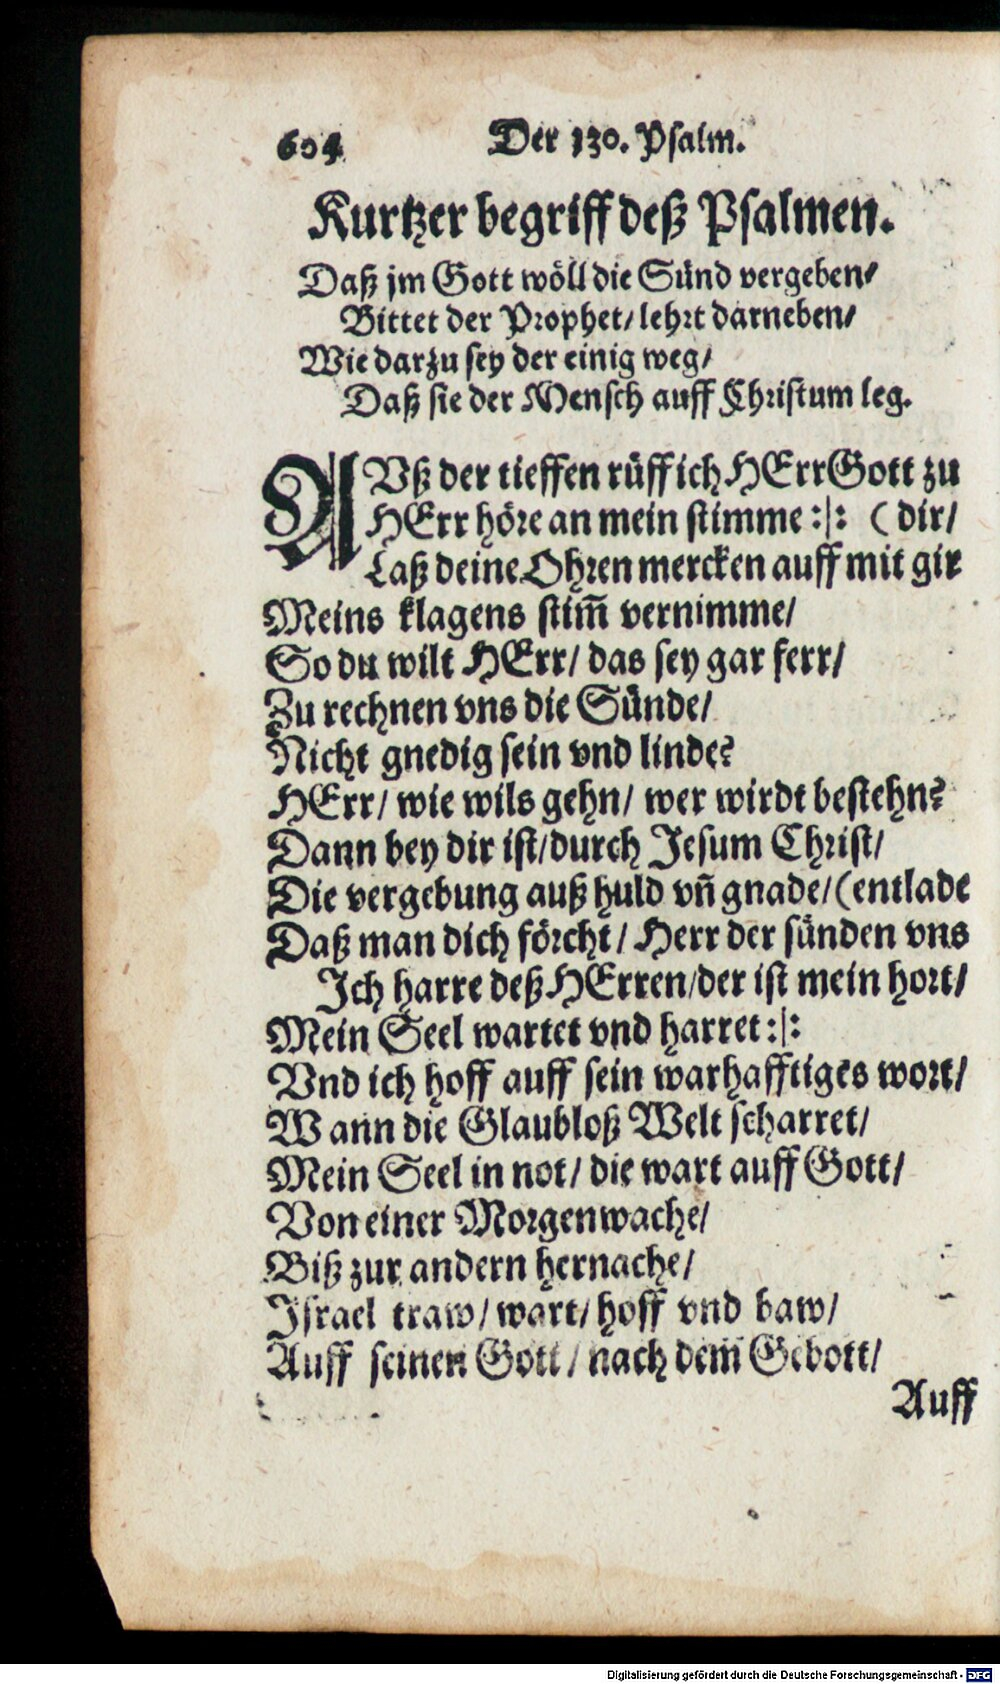 604 Der 130. Psalm.
Kurtzer begriff deß Psalmen.
Daß jm Gott wöll die Sünd vergeben/
Bittet der Prophet/ lehrt darneben/
Wie darzu sey der einig weg/
Daß sie der Mensch auff Christum leg.
AVß der tieffen rüff ich HErr Gott zu
HErr höre an mein stimme :|: (dir/
Laß deine Ohren mercken auff mit gir
Meins klagens stim̃ vernimme/
So du wilt HErr/ das sey gar ferr/
Zu rechnen vns die Sünde/
Nicht gnedig sein vnd linde?
HErr/ wie wils gehn/ wer wirdt bestehn?
Dann bey dir ist/ durch Jesum Christ/
Die vergebung auß huld vñ gnade/ (entlade
Daß man dich förcht/ Herr der sünden vns
Ich harre deß HErren/ der ist mein hort/
Mein Seel wartet vnd harret :|:
Vnd ich hoff auff sein warhafftiges wort/
Wann die Glaubloß Welt scharret/
Mein Seel in not/ die wart auff Gott/
Von einer Morgenwache/
Biß zur andern hernache/
Israel traw/ wart/ hoff vnd baw/
Auff seinen Gott/ nach dem̃ Gebott/
Auff
Digitalisierung gefördert durch die Deutsche Forschungsgemeinschaft - DFG